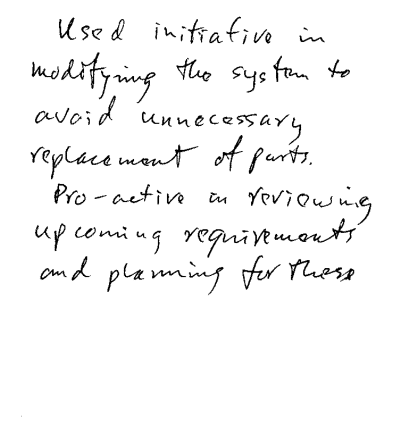 Used initiative in
modifying the system to
avoid unnecessary
replacement of parts.
Pro-active in reviewing
upcoming requirements
and planning for these